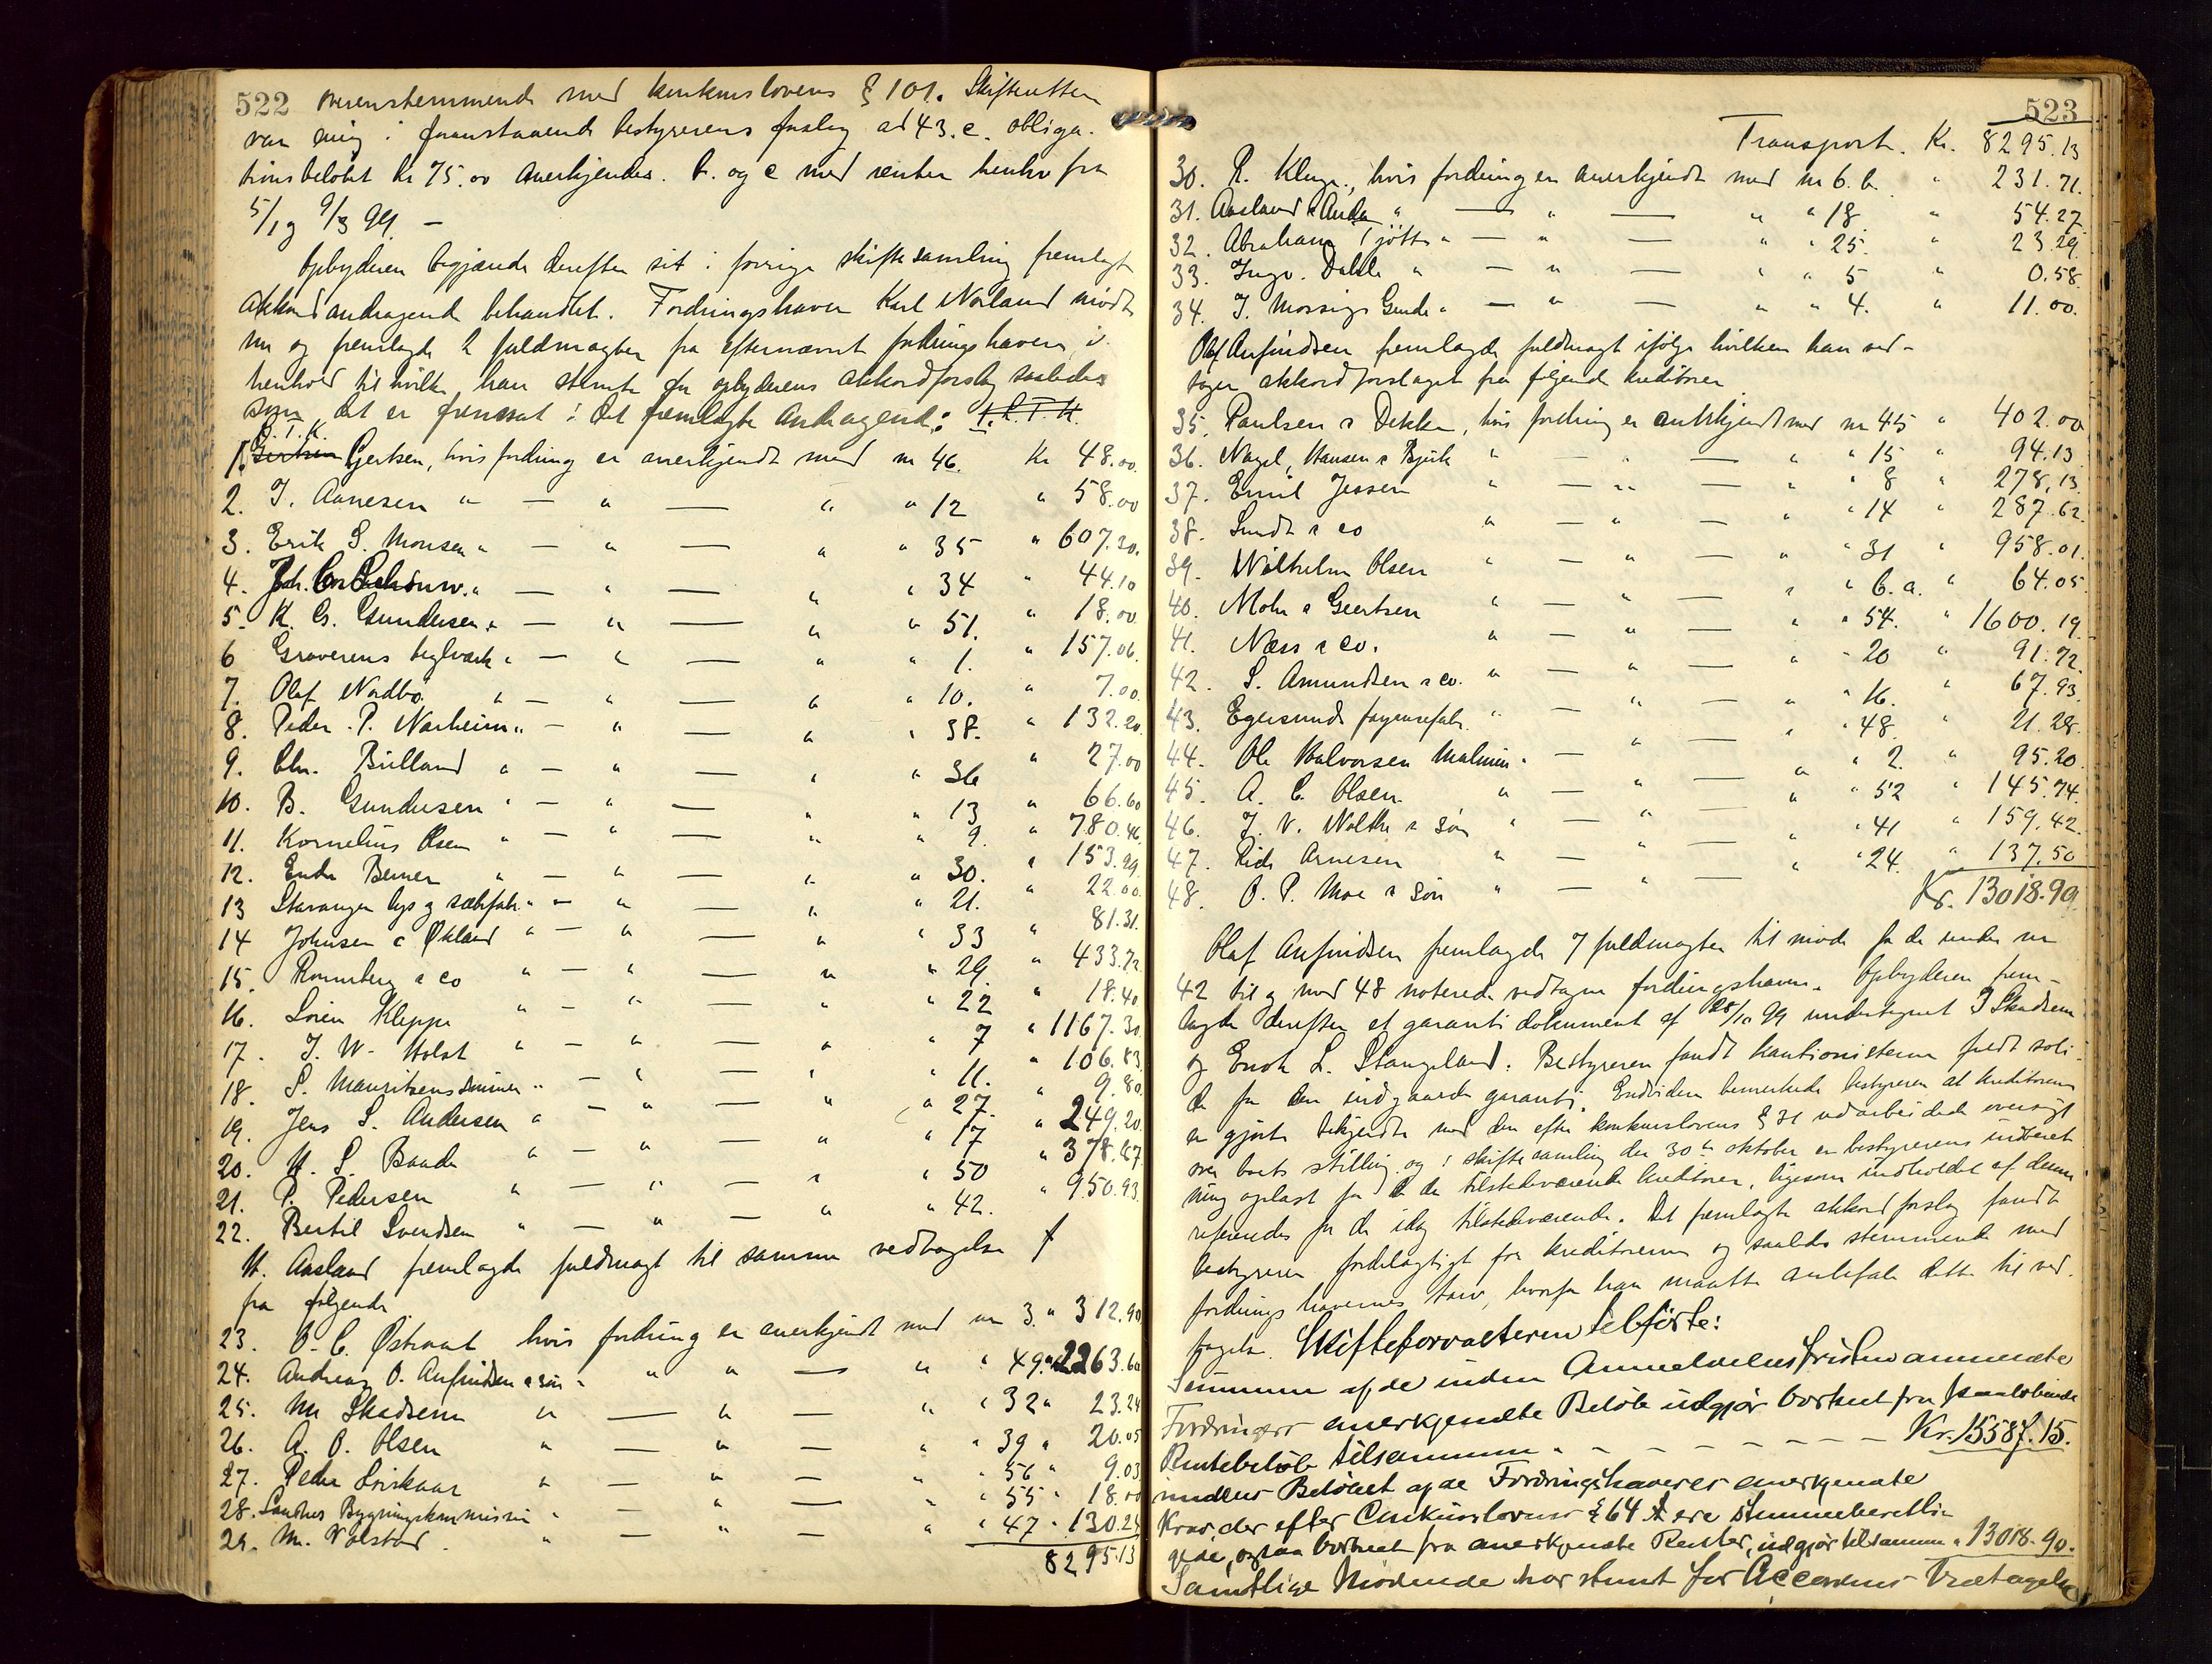 522 overensstemmende med konkurslovens § 101. Skifteretten
var enig i foranstaaende bestyrerens forslag at 43. c. obliga-
tionsbeløbet Kr 75.00 anerkjendes. b. og c med renter henhv fra
5/1 og 9/3 99. —
Opbyderen begjærede derefter sit i forrige skiftesamling fremlagte
akkordandragende behandlet. Fordringshaver Karl Norland mødte
nu og fremlagde 2 fuldmagter fra efternævnte fordringshavere, i
henhold til hvilke han stemte for opbyderens akkordforslag saaledes
som det er fremsat i det fremlagte andragende:
O. T. K.
1. Gjertsen, hvis fordring er anerkjendt med nr 46. Kr 48.00
2. T. Aanesen " — " — " " 12 " 58.00
3. Erik S. Monsen " — " — " " 35 " 607.30.
4. Joh. Schouw. " — " — " " 34 " 44.10
5. K. G. Gundersen " — " — " " 51. " 18.00
6 Graverens teglværk " — " — " " 1. " 157.06.
7. Olaf Nordbø " — " — " " 10. " 7.00
8. Peder P. Narheim " — " — " " 38. " 132.20
9. Chr. Billand " — " — " " 36 " 27.00
10. B. Gundersen " — " — " " 13 " 66.60
11. Kornelius Olsen " — " — " " 9. " 780.46
12. Endr Berner " — " — " " 30. " 153.99
13 Stavanger lys og sæbefabr. " — " — " " 21. " 22.00
14 Johnsen & Økland " — " — " " 33 " 81.31.
15. Rønneberg & co " — " — " " 29. " 433.72
16. Sören Kleppe " — " — " " 22 " 18.40
17. T. W. Holst " — " — " " 7 " 1167.30
18. S. Mauritzens " — " — " " 11. " 106.83
19. Jens S. Andersen " — " — " " 27. " 9.80
20. H. S. Baade " — " — " " 17 " 249.20
21. P. Pedersen " — " — " " 50 " 378.87
22. Bertil Svendsen " — " — " " 42. " 950.93
H. Aasland fremlagde fuldmagt til samme vedtagelse
fra følgende
23. O. C. Østraat hvis fordring er anerkjendt med nr 3. " 312.90
24. Andreas O. Anfindsen & søn " " — " " 49. " 2263.60
25. M. Skadsem " — " — " " 32 " 23.24
26. A. O. Olsen " — " — " " 39 " 20.05
27. Peder " — " — " " 56 " 9.03
28. Sandnes Bygningskommission " — " — " " 55 " 18.00
29. M. Volstad " — " — " " 47 " 130.24
8295.13
523
Transport. Kr. 8295.13
30. R. Kluge, hvis fordring er anerkjendt med nr 6. b. " 231.71.
31. Aasland & Anda " — " — " " 18. " 54.27
32. Abraham Tjøtta " — " — " " 25. " 23.29
33. Ingv. Dahle " — " — " " 5 " 0.58
34. T. Mossige Gude " — " — " " 4. " 11.00.
Olaf Anfindsen fremlagde fuldmagt ifølge hvilken han ved-
tager akkordforslaget fra følgende kreditorer
35. Paulsen & Dekke, hvis fordring er anerkjendt med nr 45 " 402.00
36. Nagel, Hansen & Bjerk " — " — " " 15 " 94.13
37. Emil Jessen " — " — " " 8 " 278.13
38. Sundt & co " — " — " " 14 " 287.62.
39. Wilhelm Olsen " — " — " " 31 " 958.01.
40. Mohr & Geertsen " — " — " " 6. a. " 64.05
41. Næss & co. " — " — " " 54. " 1600.19
42. S. Amundsen & co. " — " — " " 20 " 91.72.
43. Egersunds fayancefabr. " — " — " " 16. " 67.93
44. Ole Halvorsen Malmin " — " — " " 48. " 21.28.
45. A. C. Olsen " — " — " " 2. " 95.20
46. J. V. Woltke & søn " — " — " " 52 " 145.74.
47. Peder Arnesen " — " — " " 41 " 159.42.
48. O. P. Moe & søn " — " — " " 24. " 137.50
Kr. 13018.90
Olaf Anfindsen fremlagde 7 fuldmagter til møde for de under nr
42 til og med 48 noterede vedtagne fordringshavere. Opbyderen frem-
lagde derefter et garantidokument af 28/10 99 undertegnet T Skadsem
og Enok L. Stangeland. Bestyreren fandt kautionisterne fuldt soli-
de for den indgaaede garanti. Endvidere bemerkede bestyreren at kreditorerne
er gjort bekjendte med den efter konkurslovens § 31 udarbeidede oversigt
over boets stilling og i skiftesamling den 30te oktober er bestyrerens indberet-
ning oplæst for de da tilstedeværende kreditorer, ligesom indholdet af denne
refereredes for de idag tilstedeværende. Det fremlagte akkordforslag fandt
bestyreren fordelagtigt for kreditorerne og saaledes stemmende med
fordringshavernes tarv, hvorfor han maatte anbefale dette til ved-
tagelse. Skifteforvalteren tilførte:
Summen af de inden Anmeldelsesfristen anmeldte
Fordringers anerkjendte Beløb udgjør bortseet fra paaløbende
Rentebeløb tilsammen - - - - - - - - Kr. 15587.15.
medens Beløbet af de Fordringshaveres anerkjendte
Krav, der efter Conkurslovens § 64 ere stemmeberetti-
gede, ogsaa bortseet fra anerkjendte Renter, udgjør tilsammen " 13018.90.
Samtlige Mødende har stemt for Accordens Vedtagelse